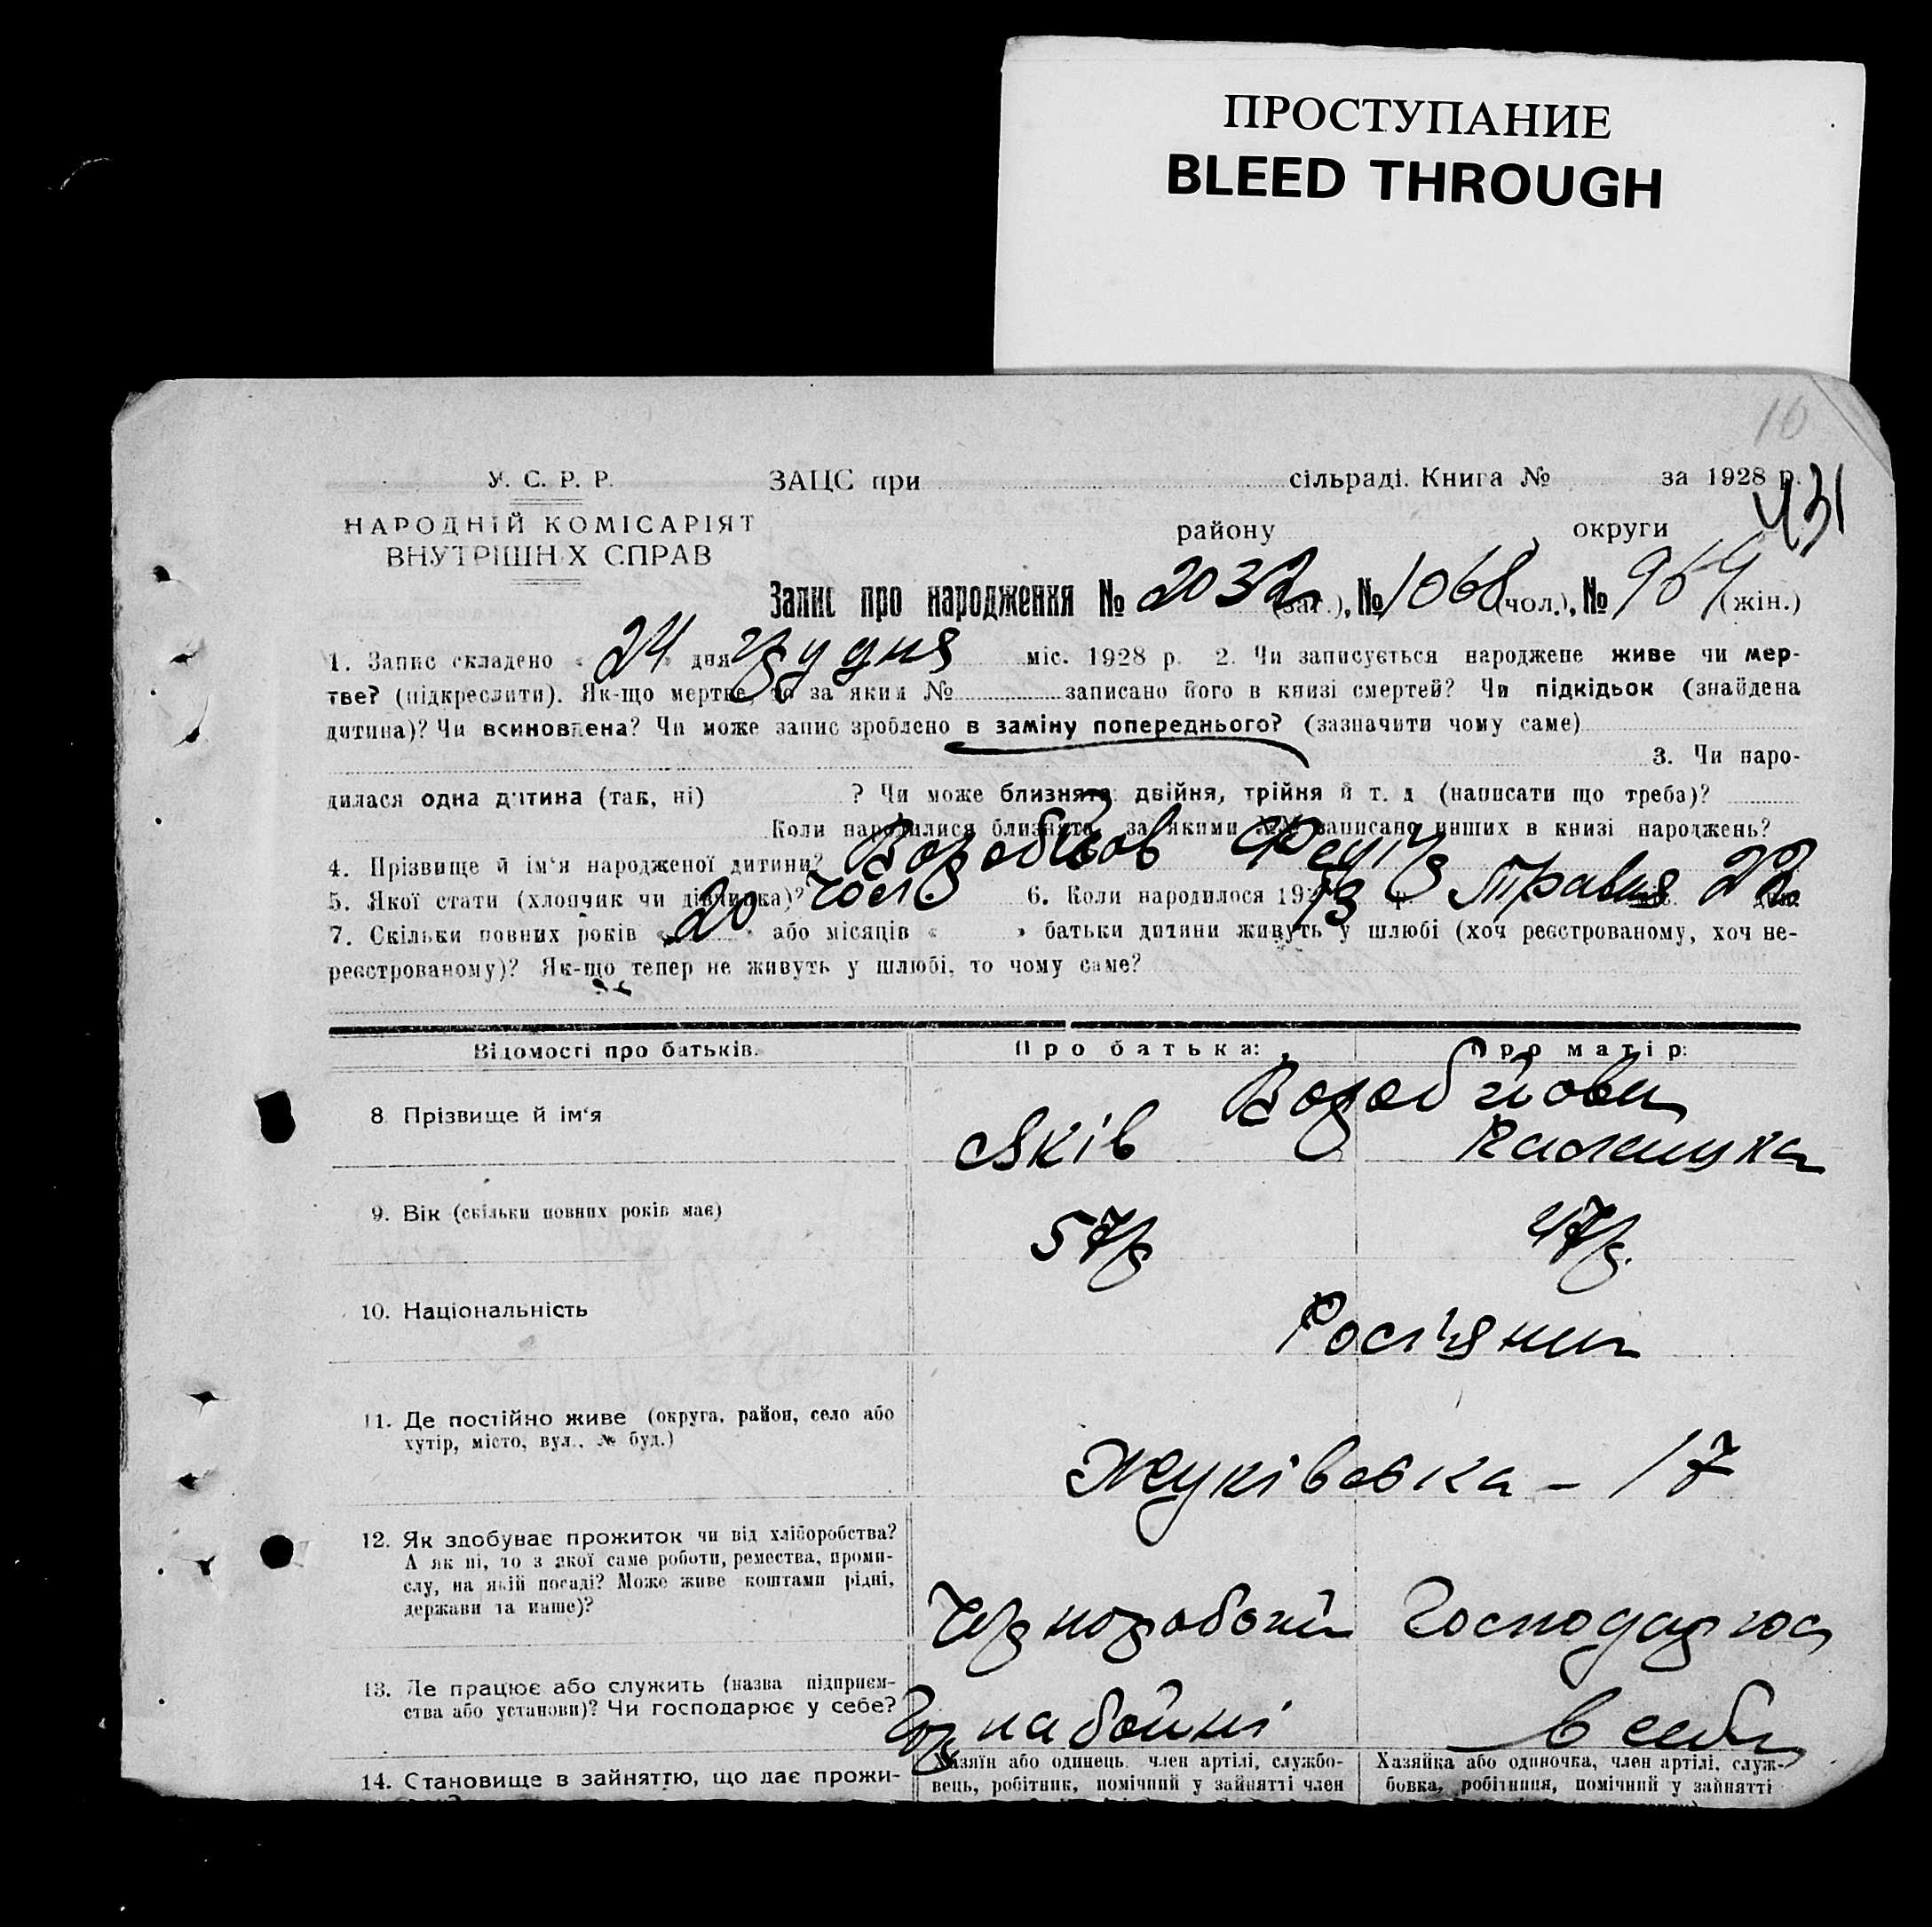 ПРОСТУПАНИЕ
BLEED THROUGH
10
431
У. С. Р. Р. ЗАЦС при сільраді. Книга № за 1928 р.
НАРОДНІЙ КОМІСАРІЯТ району округи
ВНУТРІШНІХ СПРАВ
Запис про народження № 2032 (заг.), № 1068 (чол.), № 964 (жін.)
1. Запис складено « 24 » дня грудня міс. 1928 р. 2. Чи записується народжене живе чи мер-
тве? (підкреслити). Як-що мертве, то за яким № записано його в книзі смертей? Чи підкідьок (знайдена
дитина)? Чи всиновлена? Чи може запис зроблено в заміну попереднього? (зазначити чому саме)
3. Чи наро-
дилася одна дитина (так, ні) ? Чи може близнята: двійня, трійня й т. д. (написати що треба)?
Коли народилися близнята, за якими №№ записано инших в книзі народжень?
4. Прізвище й ім'я народженої дитини?
5. Якої стати (хлопчик чи дівчинка)? чол. 6. Коли народилося 192 р. травня 22 дня
7. Скільки повних років « 20 » або місяців « » батьки дитини живуть у шлюбі (хоч реєстрованому, хоч не-
реєстрованому)? Як-що тепер не живуть у шлюбі, то чому саме?
Відомості про батьків. Про батька: Про матір:
8. Прізвище й ім'я Воробйови
Яків
9. Вік (скільки повних років має) 57 р 47 р.
10. Національність Росіяни
11. Де постійно живе (округа, район, село або
хутір, місто, вул., № буд.)
Жуківська – 17
12. Як здобуває прожиток чи від хліборобства?
А як ні, то з якої саме роботи, ремества, проми-
слу, на якій посаді? Може живе коштами рідні,
держави та инше)?
Чорноробочий Господарює
13. Де працює або служить (назва підприєм-
ства або установи)? Чи господарює у себе?
на бойні в себе
14. Становище в зайняттю, що дає прожи-
Хазяїн або одинець, член артілі, службо-
вець, робітник, помічний у зайнятті член
Хазяйка або одиночка, член артілі, служ-
бовка, робітниця, помічний у зайнятті